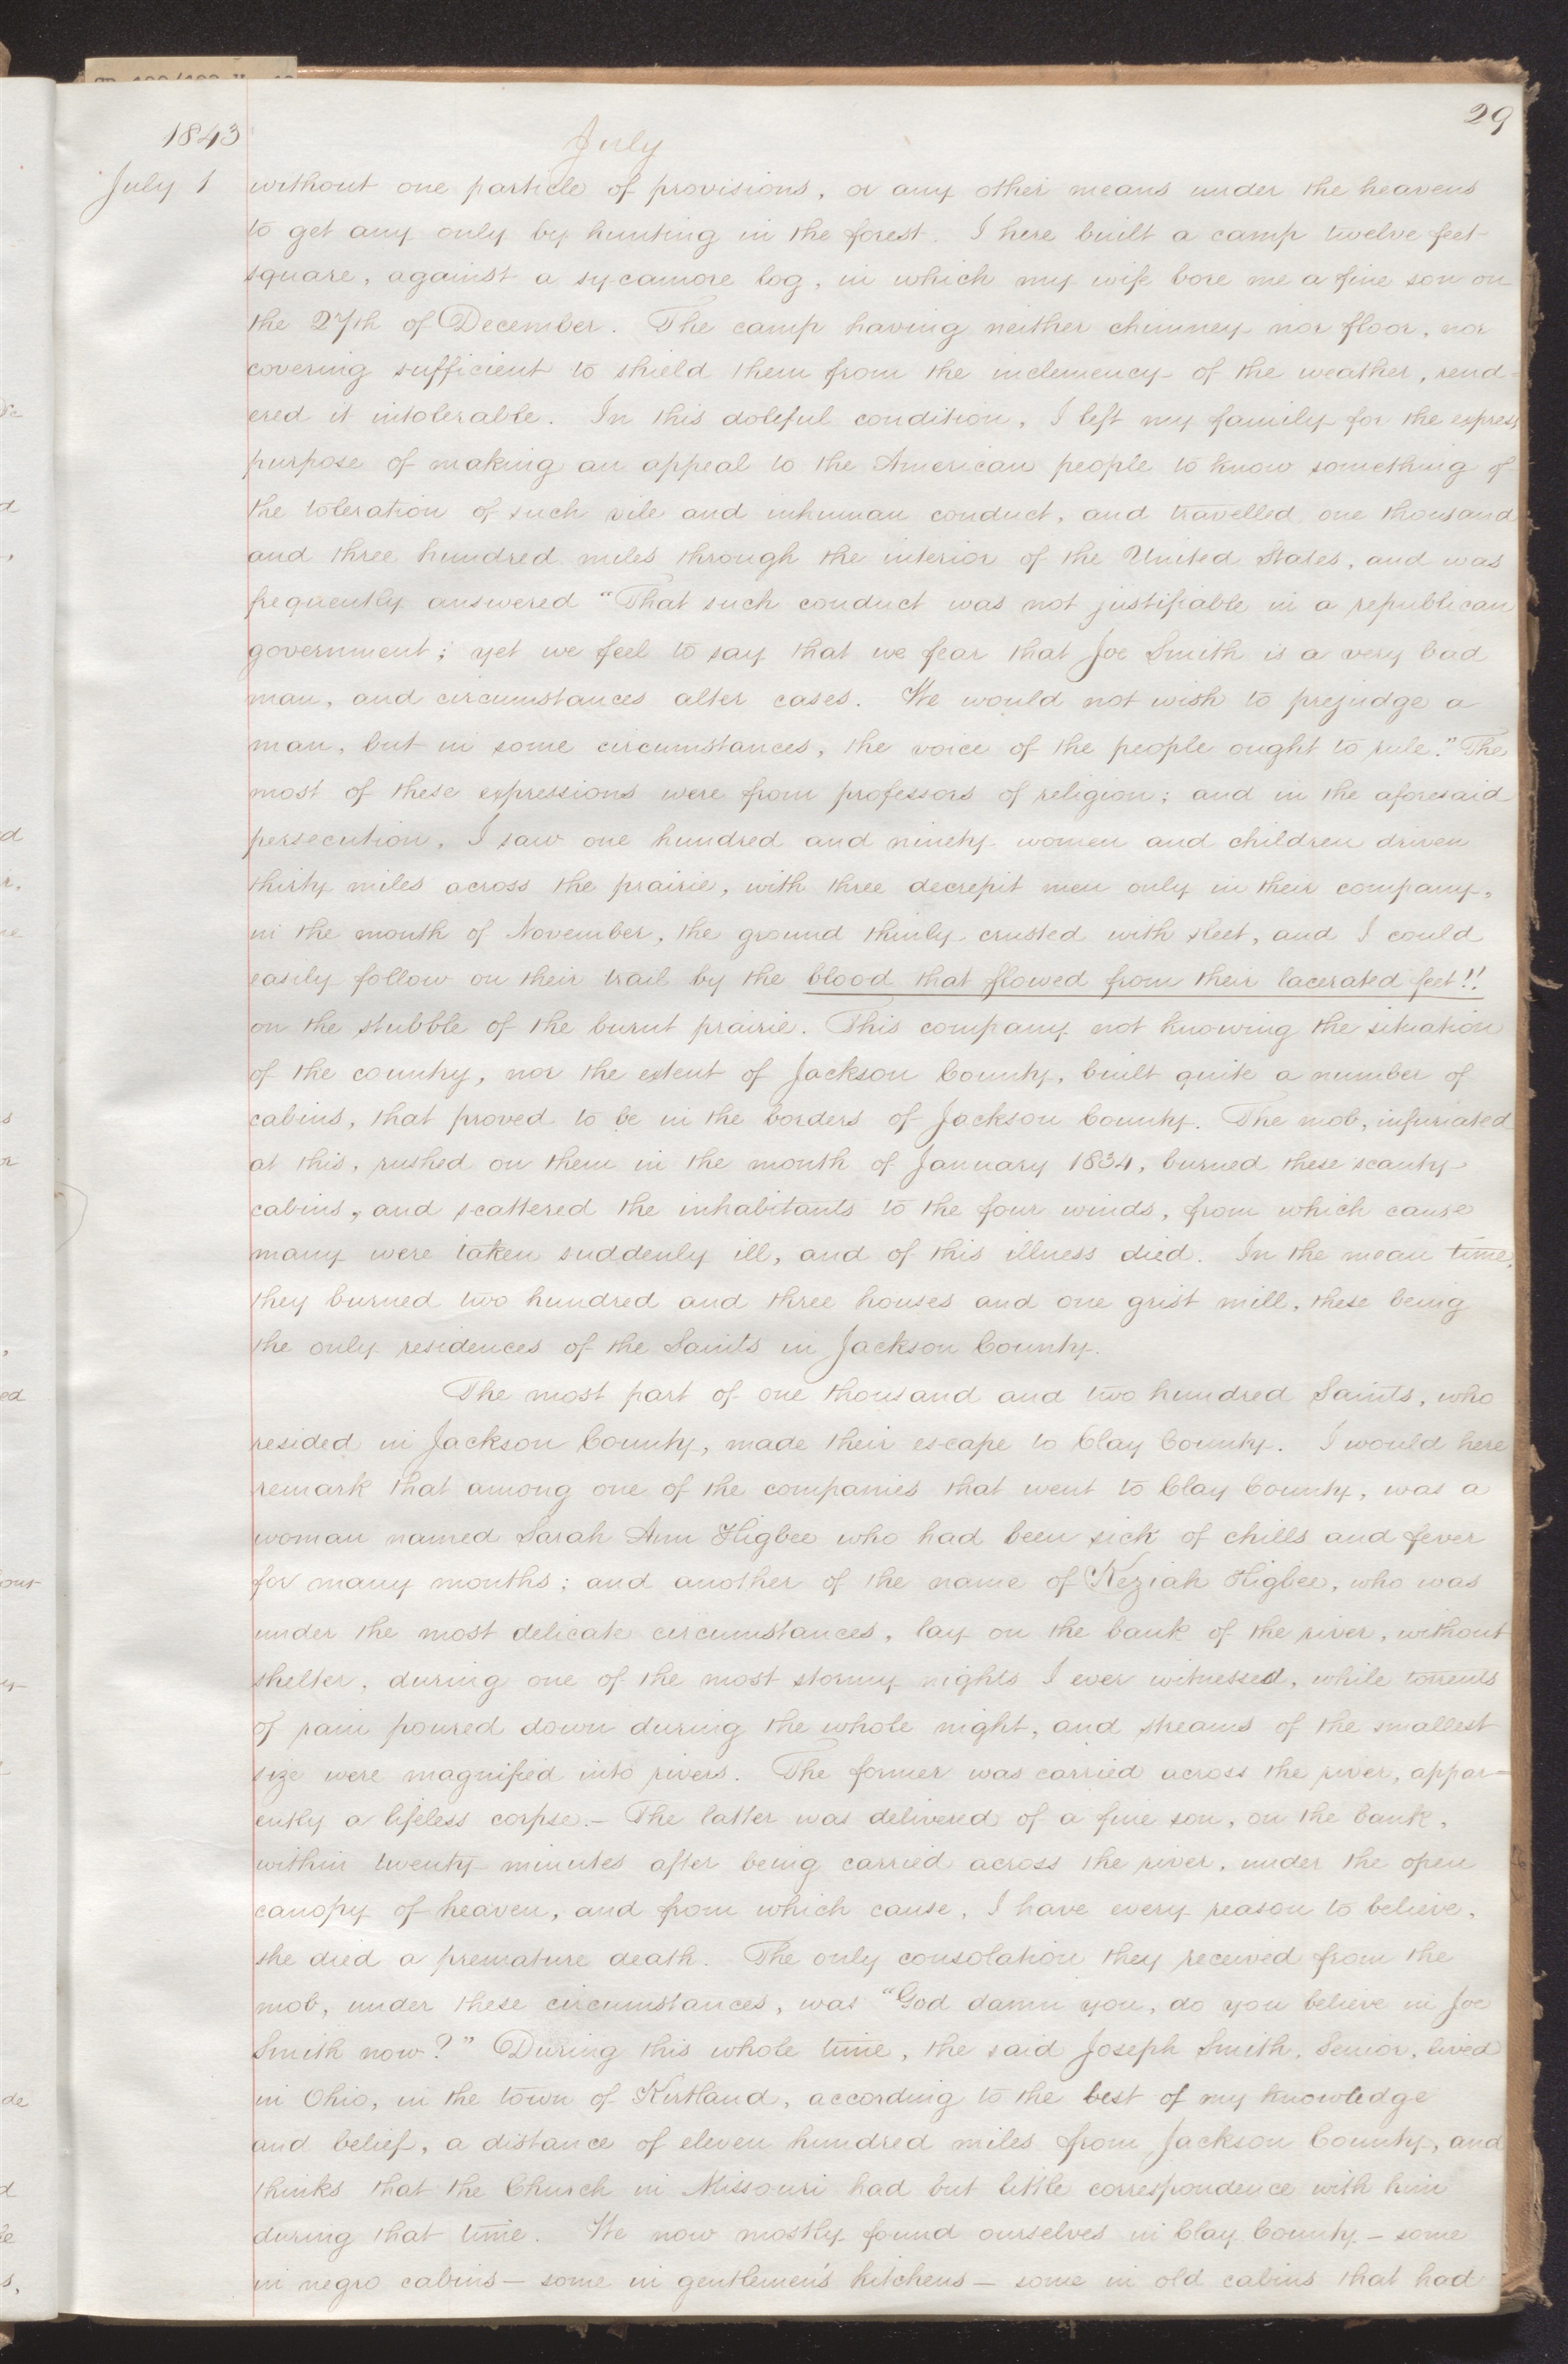 29
1843
July
July 1
without one particle of provisions, or any other means under the heavens
to get any only by hunting in the forest. I here built a camp twelve feet
square, against a sycamore log, in which my wife bore me a fine son on
the 27th of December. The camp having neither chimney nor floor, nor
covering sufficient to shield them from the inclemency of the weather, rend-
ered it intolerable. In this doleful condition, I left my family for the express
purpose of making an appeal to the American people to know something of
the toleration of such vile and inhuman conduct, and travelled one thousand
and three hundred miles through the interior of the United States, and was
frequently answered "That such conduct was not justifiable in a republican
government; yet we feel to say that we fear that Joe Smith is a very bad
man, and circumstances alter cases. We would not wish to prejudge a
man, but in some circumstances, the voice of the people ought to rule." The
most of these expressions were from professors of religion; and in the aforesaid
persecution, I saw one hundred and ninety women and children driven
thirty miles across the prairie, with three decrepit men only in their company,
in the month of November, the ground thinly crusted with sleet, and I could
easily follow on their trail by the blood that flowed from their lacerated feet!!
on the stubble of the burnt prairie. This company not knowing the situation
of the country, nor the extent of Jackson County, built quite a number of
cabins, that proved to be in the borders of Jackson County. The mob, infuriated
at this, rushed on them in the month of January 1834, burned these scanty
cabins, and scattered the inhabitants to the four winds, from which cause
many were taken suddenly ill, and of this illness died. In the mean time,
they burned two hundred and three houses and one grist mill, these being
the only residences of the Saints in Jackson County.
The most part of one thousand and two hundred Saints, who
resided in Jackson County, made their escape to Clay County. I would here
remark that among one of the companies that went to Clay County, was a
woman named Sarah Ann Higbee who had been sick of chills and fever
for many months; and another of the name of Keziah Higbee, who was
under the most delicate circumstances, lay on the bank of the river, without
shelter, during one of the most stormy nights I ever witnessed, while torrents
of rain poured down during the whole night, and streams of the smallest
size were magnified into rivers. The former was carried across the river, appar-
ently a lifeless corpse.— The latter was delivered of a fine son, on the bank,
within twenty minutes after being carried across the river, under the open
canopy of heaven, and from which cause, I have every reason to believe,
she died a premature death. The only consolation they received from the
mob, under these circumstances, was "God damn you, do you believe in Joe
Smith now?" During this whole time, the said Joseph Smith, Senior, lived
in Ohio, in the town of Kirtland, according to the best of my knowledge
and belief, a distance of eleven hundred miles from Jackson County, and
thinks that the Church in Missouri had but little correspondence with him
during that time. We now mostly found ourselves in Clay County — some
in negro cabins — some in gentlemen's kitchens — some in old cabins that had